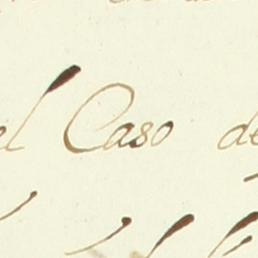 el Caso de